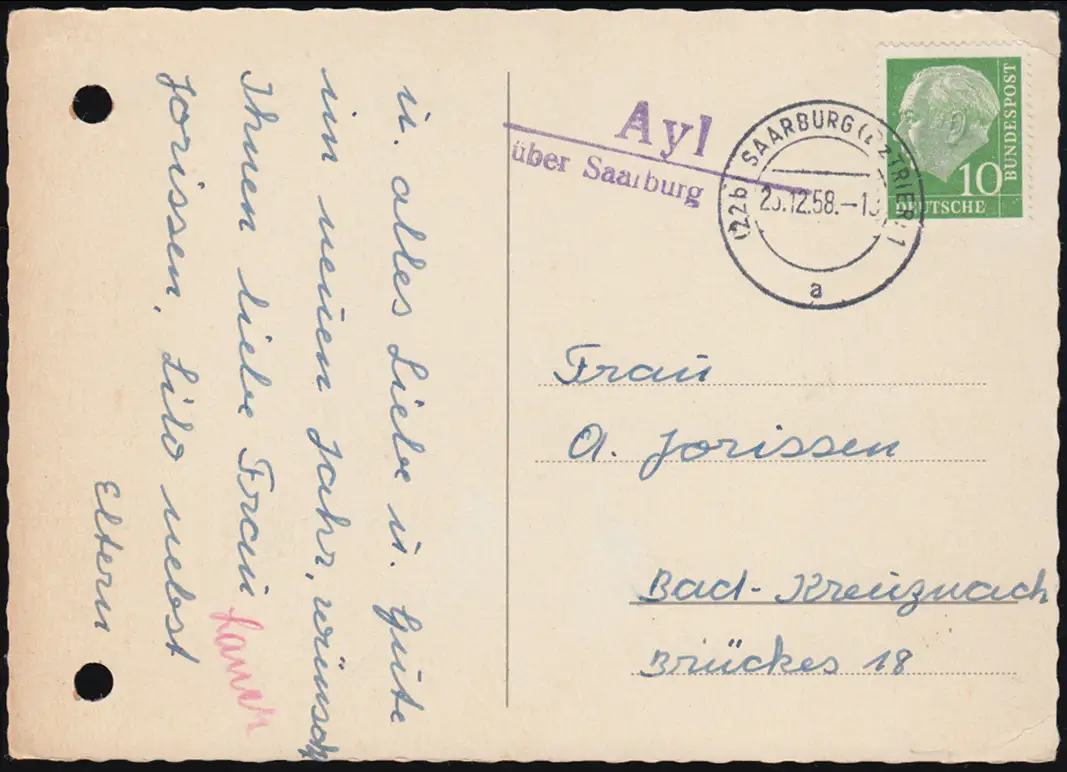 u. alles Liebe u. Gute
im neuen Jahr, wünscht
Ihnen liebe Frau
Jorissen, Lilo nebst
Eltern
Ayl
über Saarburg
(22b) SAARBURG (BZ TRIER) 1
12.58.-1
a
BUNDESPOST
10
DEUTSCHE
Frau
A. Jorissen
Bad-Kreuznach
Brückes 18